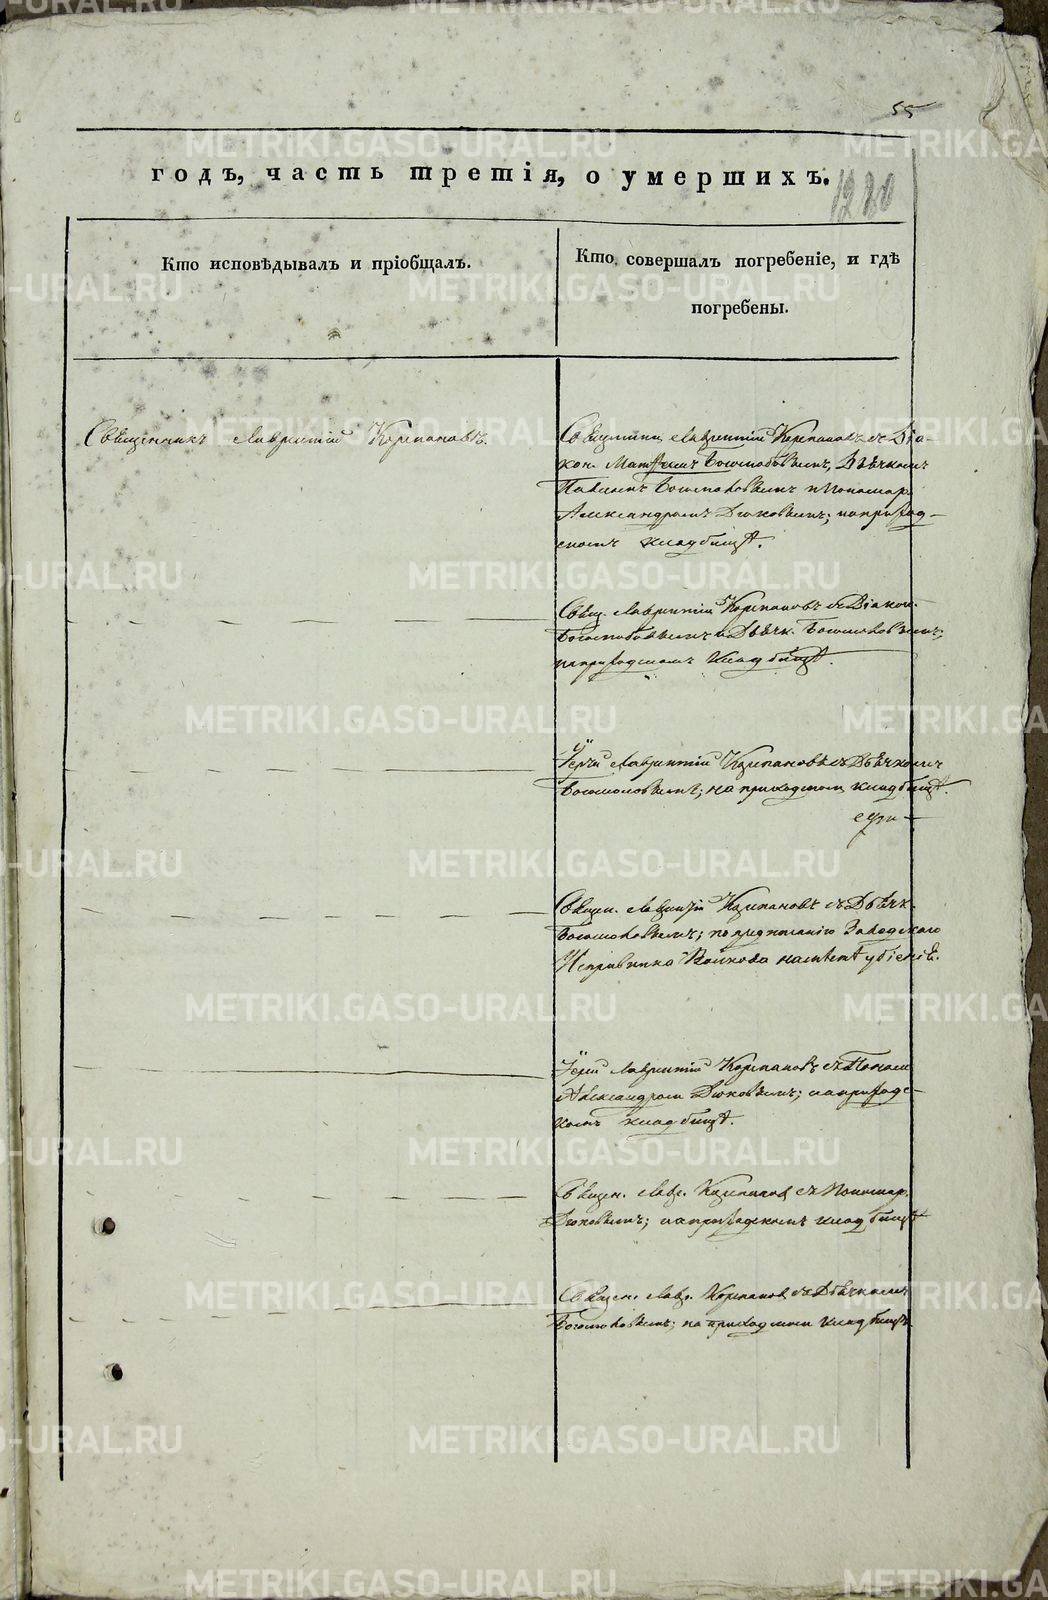 55
годъ, часть третія, о умершихъ.
1220
Кто исповѣдывалъ и пріобщалъ.
Кто совершалъ погребеніе, и гдѣ
погребены.
Священникъ Лаврентій Корепановъ.
Священник Лаврентій Корепановъ съ Діа-
кон. Матфеемъ Богомоловымъ, Дьячкомъ
Павломъ Богомоловымъ и Пономар.
Александромъ Дюковымъ; на приход-
скомъ кладбищѣ.
Свящ. Лаврентій Корепановъ съ Діакон.
Богомоловымъ и Дьячк. Богомоловымъ;
на приходскомъ кладбищѣ.
Іерей Лаврентій Корепановъ съ Дьячкомъ
Богомоловымъ; на приходском кладбищѣ.
Священ. Лаврентій Корепановъ съ Дьячк.
Богомоловымъ; по предписанію Заводскаго
Исправника Волкова на мѣстѣ убіенія.
Іерей Лаврентій Корепановъ съ Поном.
Александром Дюковымъ; на приходс-
комъ кладбищѣ.
Священ. Лавр. Корепанов съ Пономар.
Дюковымъ; на приходскомъ кладбищѣ
Священ. Лавр. Корепанов съ Дьячкомъ
Богомоловымъ; на приходском кладбищѣ
METRIKI.GASO-URAL.RU